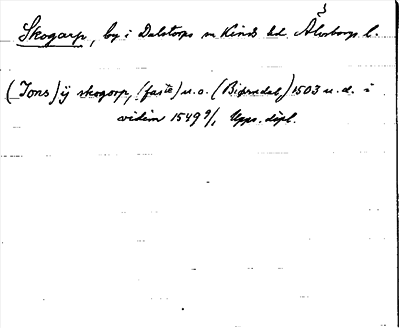 Skogarp, by i Dalstorps sn Kinds hd. Älvsborgs l.
(Jons) ij skogarp, (faste) u.o. (Biærndal) 1503 u.d. i
vidim 1549 9/1 Upps. dipl.